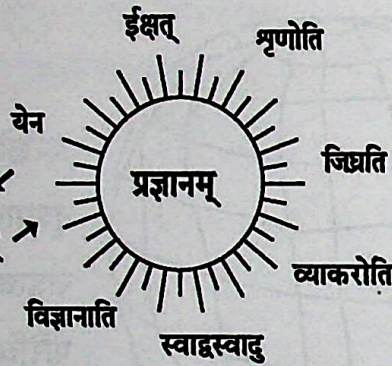 ईक्षत्
श्रृणोति
येन
जिघ्रति
प्रज्ञानम्
व्याकरोति
विज्ञानाति
स्वाद्वस्वादु